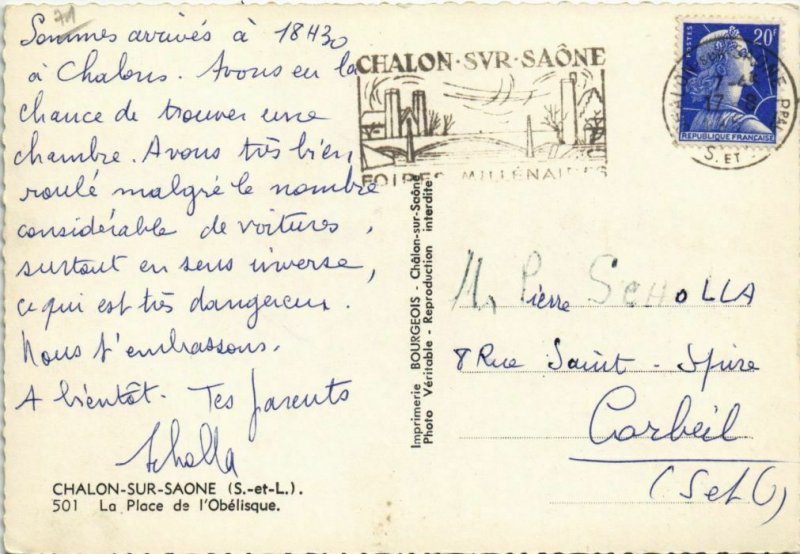 Sommes arrivés à 18H30
à Chalons. Avons eu la
chance de trouver une
chambre. Avons très bien
roulé malgré le nombre
considérable de voitures,
surtout en sens inverse,
ce qui est très dangereux.
Nous t'embrassons.
A bientôt. Tes parents
Scholla
CHALON-SUR-SAONE (S.-et-L.).
501 La Place de l'Obélisque.
Imprimerie BOURGEOIS - Châlon-sur-Saône
Photo Véritable - Reproduction interdite
CHALON·SUR·SAÔNE
FOIRES MILLÉNAIRES
POSTES
20F
REPUBLIQUE FRANÇAISE
17
S. ET
M. Pierre SCHOLLA
8 Rue Saint-Spire
Corbeil
(S et O)